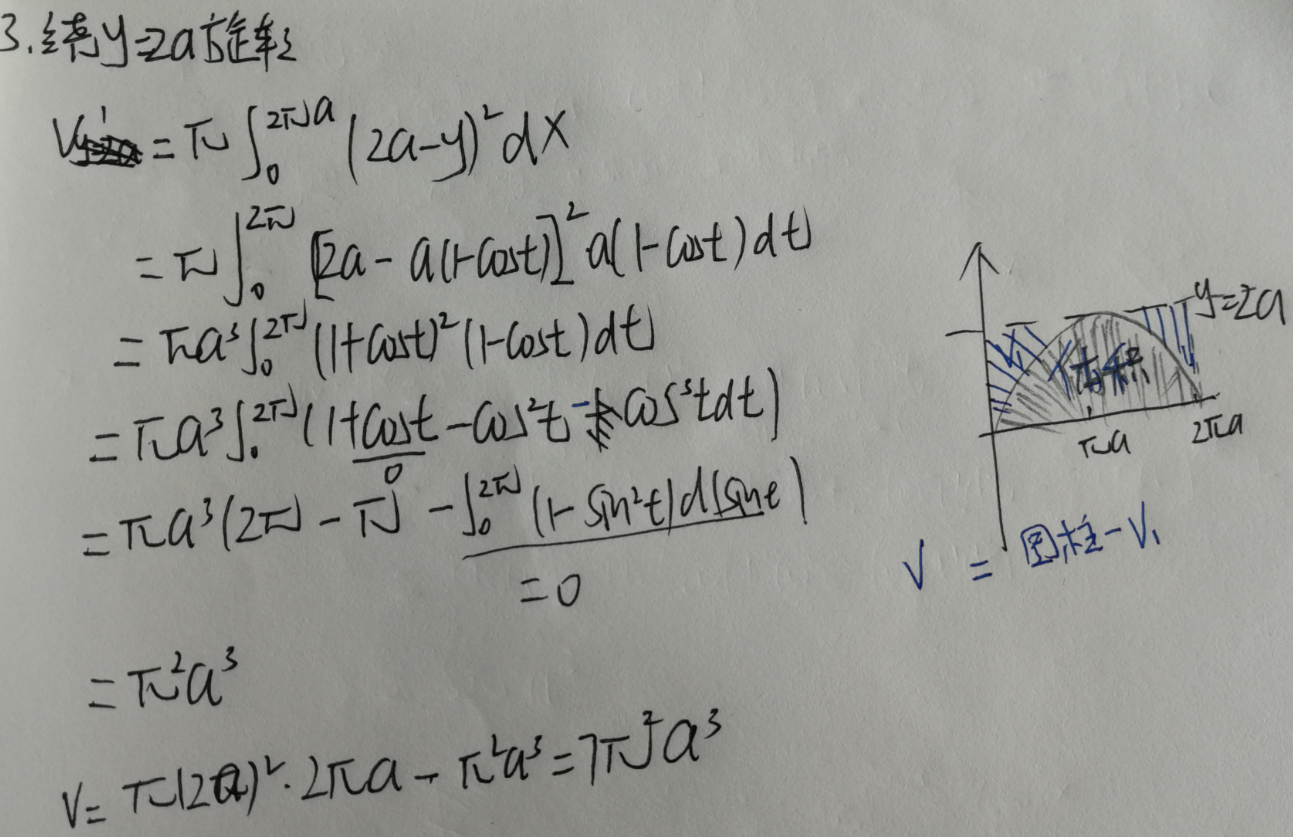 3.绕y=2a旋转
V₁=π∫₀^{2πa}(2a-y)²dx
=π∫₀^{2π}[2a-a(1-cost)]²a(1-cost)dt
=πa³∫₀^{2π}(1+cost)²(1-cost)dt
=πa³∫₀^{2π}(1+cost-cos²t-cos³tdt)
0
=πa³(2π-π-∫₀^{2π}(1-sin²t)d(sint)
=0
=π²a³
V=π(2a)²·2πa-π²a³=7π²a³
y=2a
V₁
πa
2πa
V=圆柱-V₁